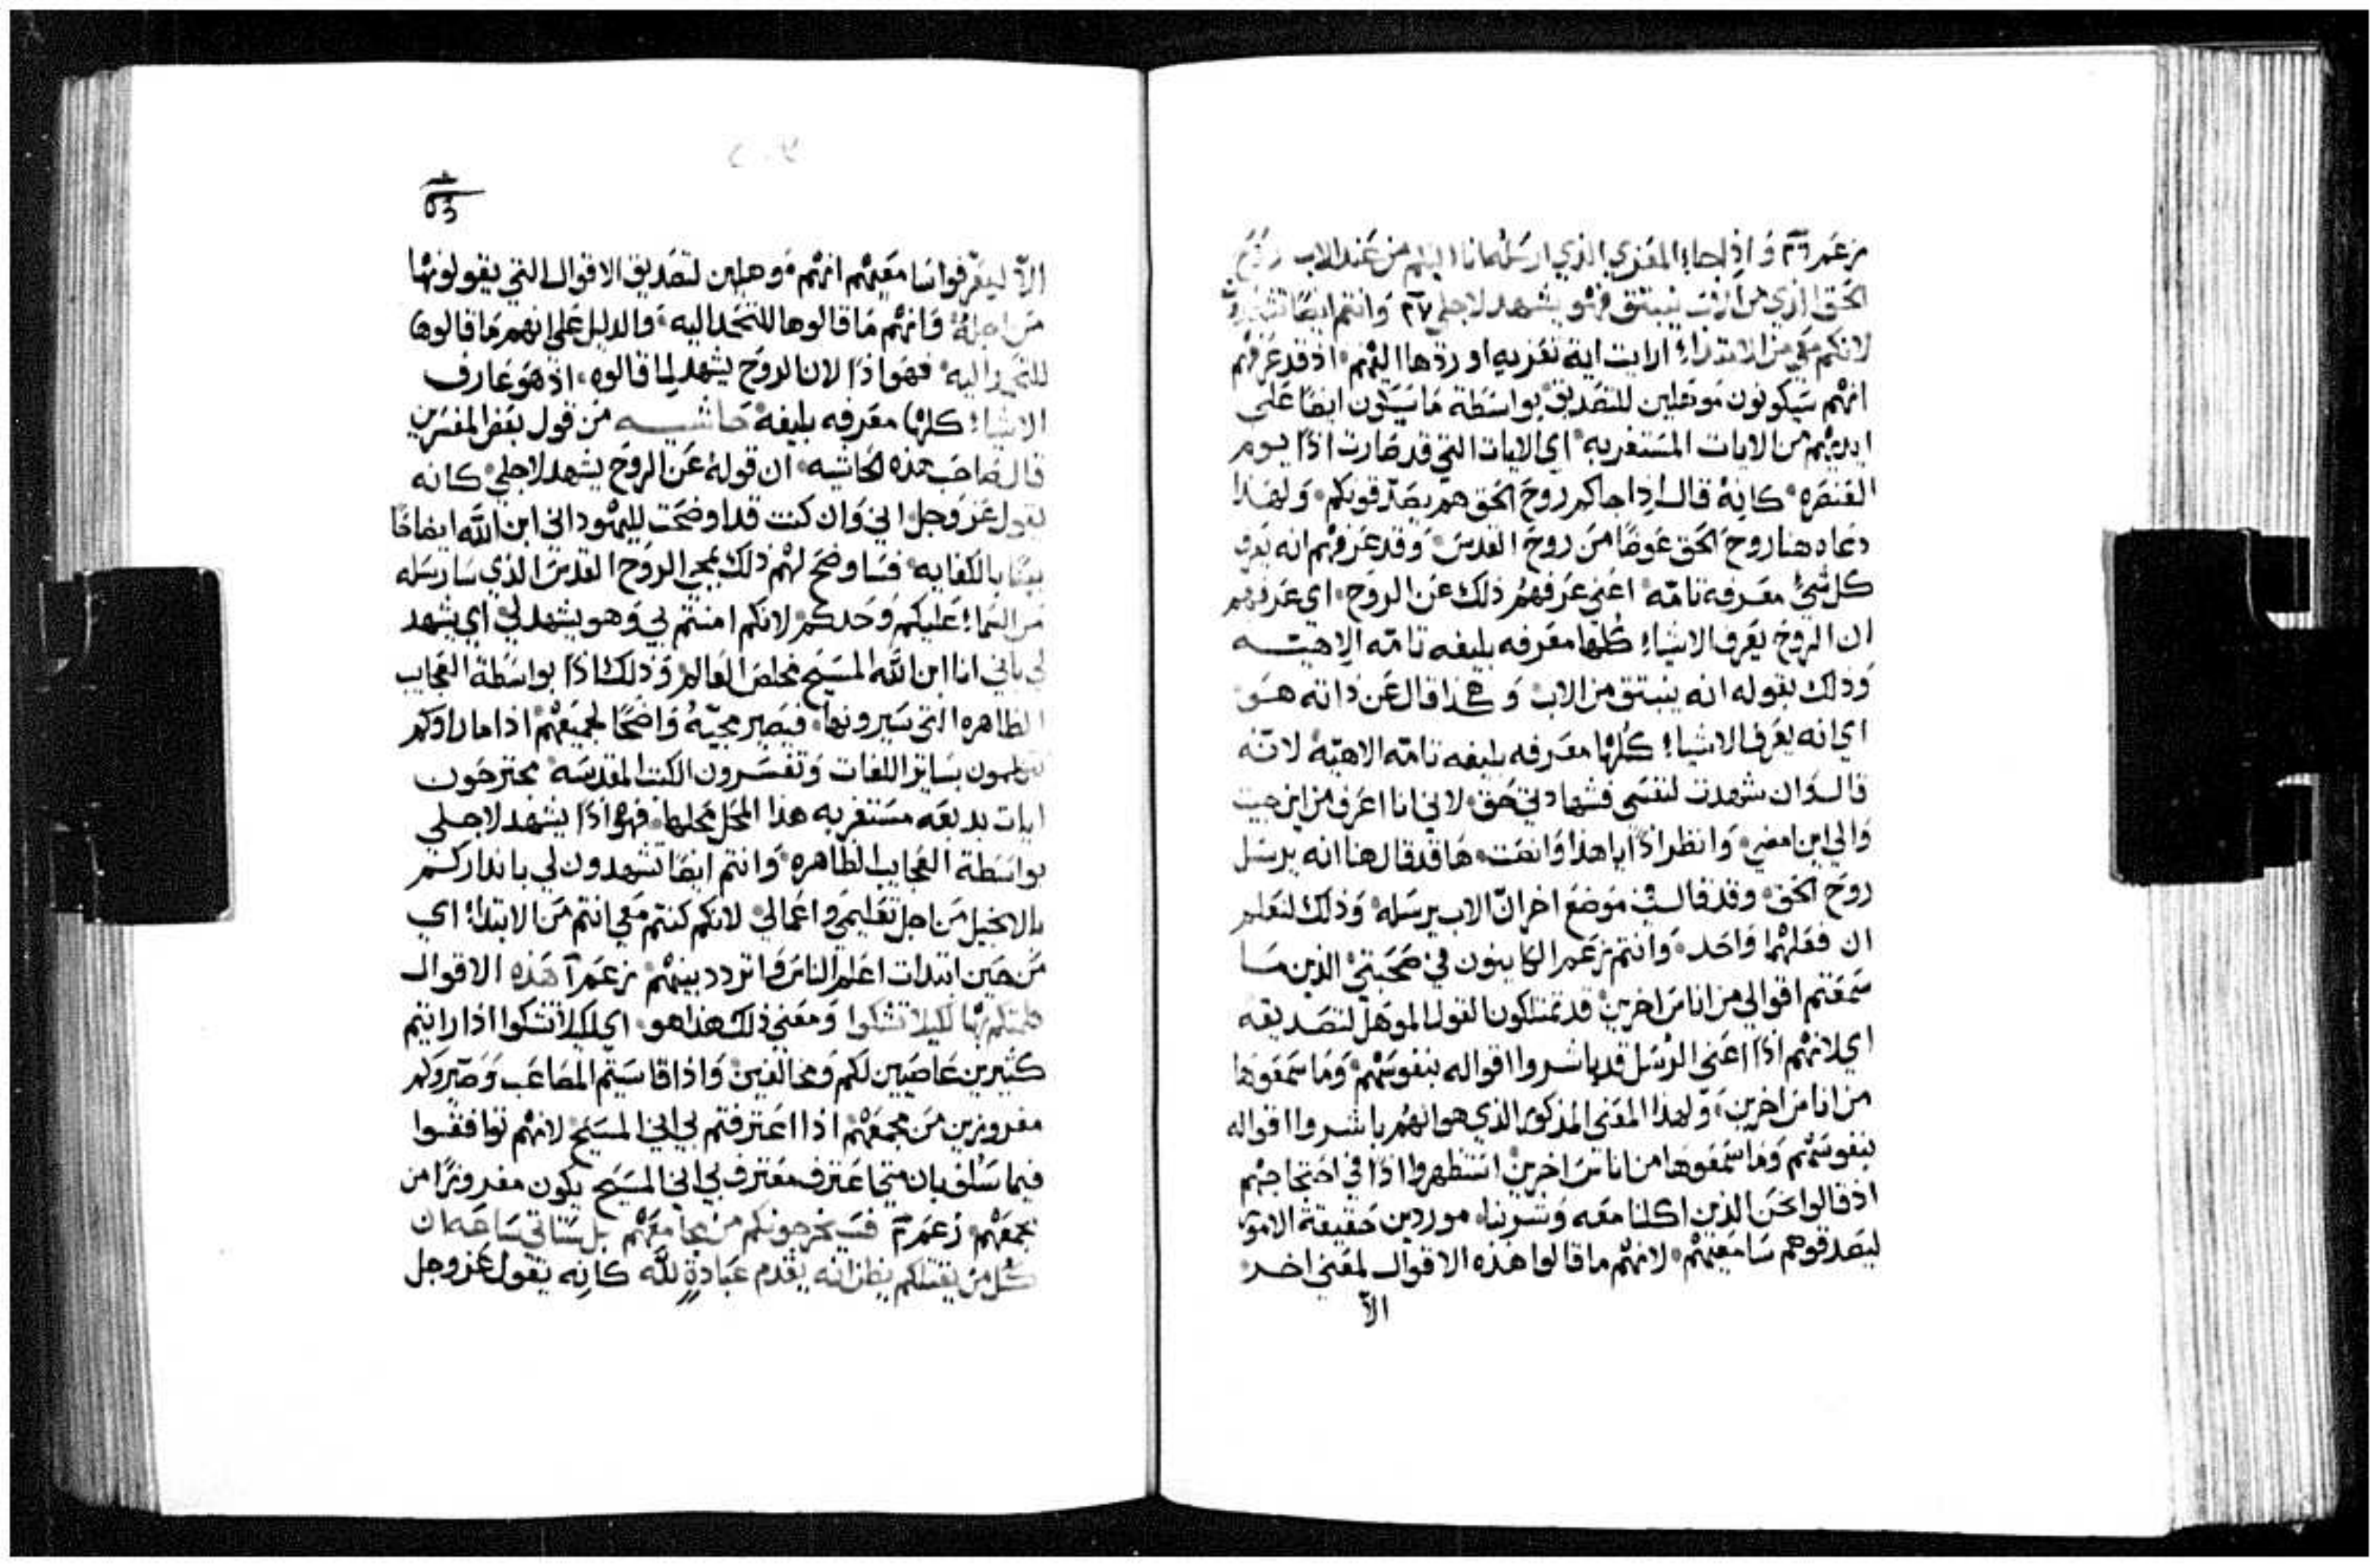 زعم ٢٦ واذا جاء المعزي الذي ارسله انا اليكم من عند الاب روح
الحق الذي من الاب ينبثق فهو يشهد لاجلي ٢٧ وانتم ايضا تشهدون
لانكم معي من الابتداء ارايت اية تعزيه اوردها اليهم اذ قد عرفهم
انهم سيكونون موهلين للتصديق بواسطة ما سيكون ايضا على
ايديهم من الايات المستغربه اي الايات التي قد صارت اذا يوم
العنصره كانه قال اذا جاكم روح الحق هم يصدقونكم ولهذا
دعاه هنا روح الحق عوضا من روح القدس وقد عرفهم انه يعرف
كل شي معرفه تامه اعني عرفهم ذلك عن الروح اي عرفهم
ان الروح يعرف الاشياء كلها معرفه بليغه تامه الاهيه
وذلك بقوله انه ينبثق من الاب وهكذا قال عن ذاته هو
اي انه يعرف الاشياء كلها معرفه بليغه تامه الاهيه لانه
قال وان شهدت لنفسي فشهادتي حق لاني انا اعرف من اين جيت
والى اين امضي وانظر اذا يا هذا وانصت ها قد قال هنا انه يرسل
روح الحق وقد قال في موضع اخر ان الاب يرسله وذلك لتعلم
ان فعلهما واحد وانتم زعم الكاينون في صحبتي الذين ما
سمعتم اقوالي من اناس اخرين قد تمتلكون القول الموهل لتصديقه
اي لانهم اذا اعني الرسل قد باشروا اقواله بنفوسهم وما سمعوها
من اناس اخرين ولهذا المعنى المذكور الذي هو انهم باشروا اقواله
بنفوسهم وما سمعوها من اناس اخرين استظهروا اذا في احتجاجهم
اذ قالوا نحن الذين اكلنا معه وشربنا موردين حقيقة الامور
ليصدقوهم سامعيهم لانهم ما قالوا هذه الاقوال لمعنى اخر
الا
٥٣
الا ليعرفوا سامعيهم انهم موهلين لتصديق الاقوال التي يقولونها
من اجله وانهم ما قالوها للتحد اليه والدليل على انهم ما قالوها
اليه فهو اذا لان الروح يشهد لما قالوه اذ هو عارف
الاشياء كلها معرفه بليغه حاشيه من قول بعض المفسرين
قال صاحب هذه الحاشيه ان قوله عن الروح يشهد لاجلي كانه
يقول عز وجل اني وان كنت قد اوضحت لليهود اني ابن الله ايضاحا
بالكفايه فساوضح لهم ذلك بمجي الروح القدس الذي سارسله
من السماء عليكم وحدكم لانكم امنتم بي وهو يشهد لي اي يشهد
لي باني انا ابن الله المسيح مخلص العالم وذلك اذا بواسطة العجايب
الظاهره التي سيرونها فيصير مجيه واضحا لجميعهم اذا ما راوكم
تتكلمون بساير اللغات وتفسرون الكتب المقدسه مجترحون
ايات بديعه مستغربه هذا المحل محلها فهو اذا يشهد لاجلي
بواسطة العجايب الظاهره وانتم ايضا تشهدون لي بانذاركم
بالانجيل من اجل تعليمي واعمالي لانكم كنتم معي انتم من الابتداء اي
من حين ابتدات اعلم الناس واتردد بينهم زعم ١ هذه الاقوال
كلمتكم بها لكيلا تشكوا ومعنى ذلك هذا هو اي لكيلا تشكوا اذا رايتم
كثيرين عاصيين لكم ومخالفين واذا قاسيتم المصاعب وصيروكم
مفروزين من مجمعهم اذا اعترفتم بي اني المسيح لانهم توافقوا
فيما سلف بان متى اعترف معترف بي اني المسيح يكون مفروزا من
مجمعهم زعم ٢ فسيخرجونكم من مجامعهم بل ستاتي ساعه ان
كل من يقتلكم يظن انه يقدم عبادة لله كانه يقول عز وجل